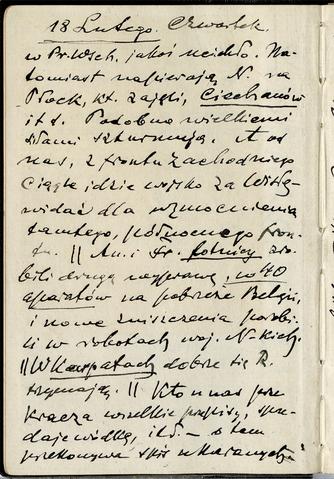 18 Lutego. Czwartek.
w Pr. Wsch. jakoś ucichło. Na-
tomiast napierają N. na
Płock, kt. zajęli, Ciechanów
itd. Podobno wielkiemi
siłami szturmują. U nas
nas, z frontu zachodniego
ciągle idzie wojsko za Wisłę
widać dla wzmocnienia
tamtego, północnego fron-
tu. || An. i Fr. lotnicy zro-
bili drugą wyprawę, w 40
aparatów na pobrzeże Belgii,
i nowe zniszczenia porobi-
li w robotach woj. N-kich.
|| W Karpatach dobrze się R.
trzymają. || Kto u nas prze
kracza wielkie przepisy, sprze-
daje wódkę, itd. — o tem
przekonywa spis ukaranych